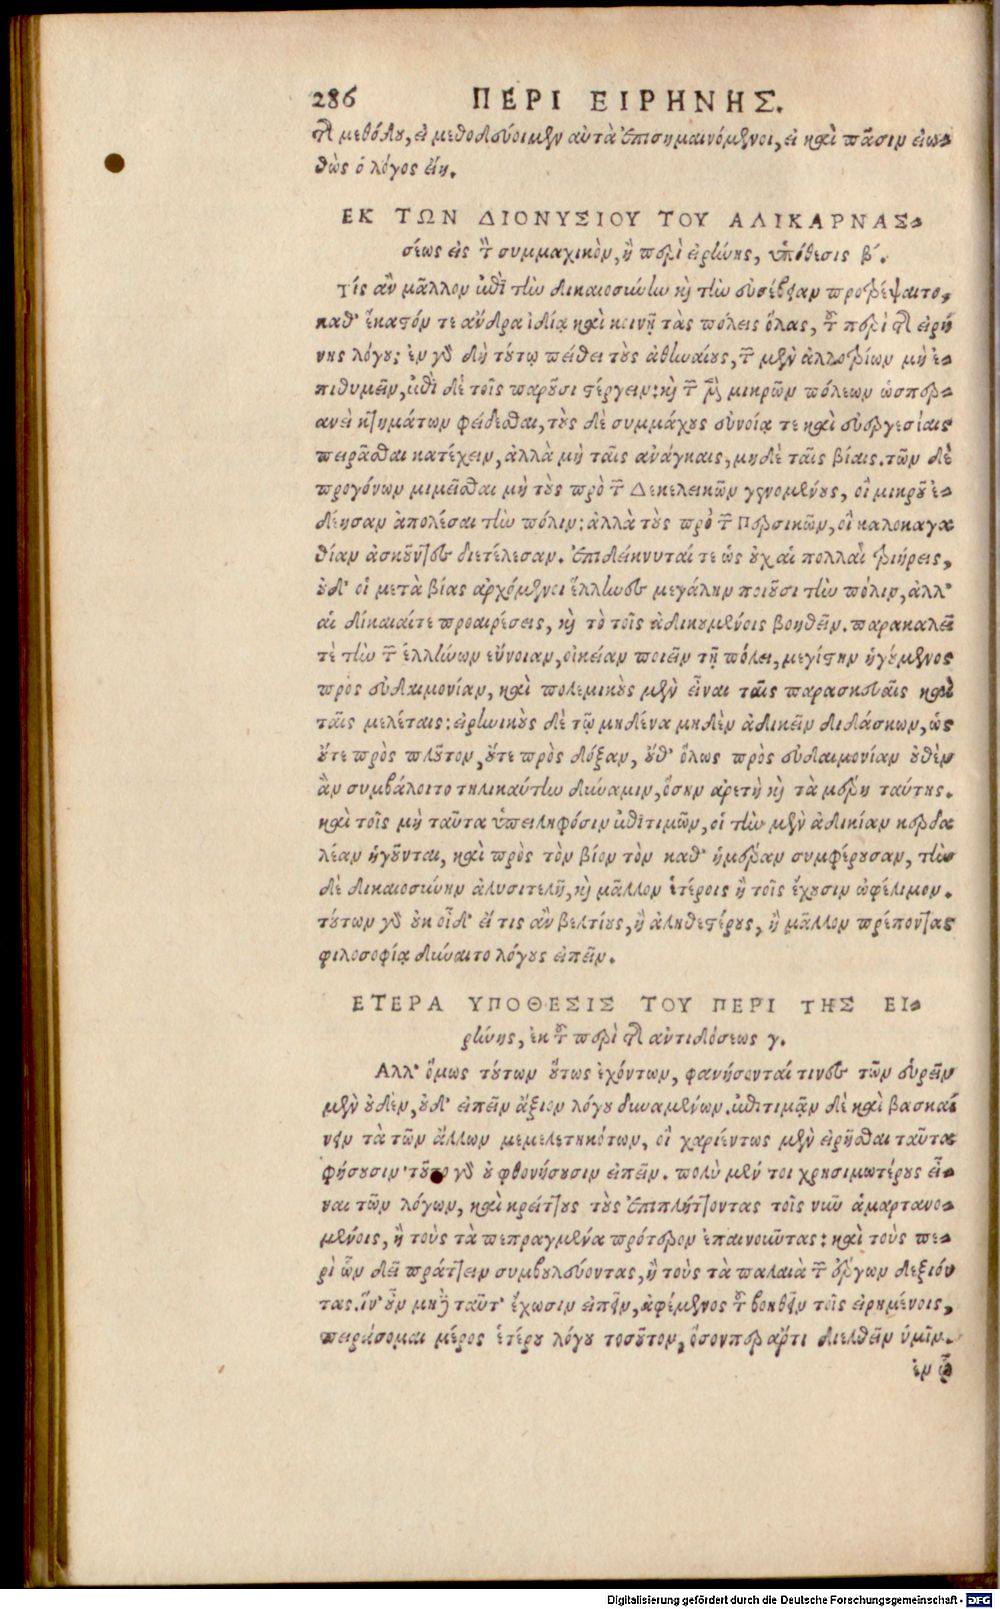 286 ΠΕΡΙ ΕΙΡΗΝΗΣ.
τῆς μεθόδου, εἰ μεθοδεύοιμεν αὐτὰ ἐπισημαινόμενοι, εἰ καὶ πᾶσιν εἰω-
θὼς ὁ λόγος εἴη.
ΕΚ ΤΩΝ ΔΙΟΝΥΣΙΟΥ ΤΟΥ ΑΛΙΚΑΡΝΑΣ-
σέως εἰς τὸν συμμαχικὸν, ἢ περὶ εἰρήνης, ὑπόθεσις β΄.
Τίς ἂν μᾶλλον ἐπὶ τὴν δικαιοσύνην καὶ τὴν εὐσέβειαν προτρέψαιτο,
καθ' ἕκαστόν τε ἄνδρα ἰδίᾳ καὶ κοινῇ τὰς πόλεις ὅλας, τοῦ περὶ τῆς εἰρή
νης λόγου; ἐν γὰρ δὴ τούτῳ πείθει τοὺς ἀθηναίους, τῶν μὲν ἀλλοτρίων μὴ ἐ-
πιθυμεῖν, ἐπὶ δὲ τοῖς παροῦσι στέργειν: καὶ τῶν μὲν μικρῶν πόλεων ὡσπερ-
ανεὶ κτημάτων φείδεσθαι, τοὺς δὲ συμμάχους εὐνοίᾳ τε καὶ εὐεργεσίαις
πειρᾶσθαι κατέχειν, ἀλλὰ μὴ ταῖς ἀνάγκαις, μηδὲ ταῖς βίαις. τῶν δὲ
προγόνων μιμεῖσθαι μὴ τοὺς πρὸ τῶν Δεκελεικῶν γενομένους, οἳ μικροῦ ἐ-
δέησαν ἀπολέσαι τὴν πόλιν: ἀλλὰ τοὺς πρὸ τῶν Περσικῶν, οἳ καλοκαγα
θίαν ἀσκοῦντες διετέλεσαν. ἐπιδείκνυταί τε ὡς οὐχ αἱ πολλαὶ τριήρεις,
οὐδ' οἱ μετὰ βίας ἀρχόμενοι ἕλληνες μεγάλην ποιοῦσι τὴν πόλιν, ἀλλ'
αἱ δίκαιαί τε προαιρέσεις, καὶ τὸ τοῖς ἀδικουμένοις βοηθεῖν. παρακαλεῖ
τὲ τὴν τῶν ἑλλήνων εὔνοιαν, οἰκείαν ποιεῖν τῇ πόλει, μεγίστην ἡγούμενος
πρὸς εὐδαιμονίαν, καὶ πολεμικοὺς μὲν εἶναι ταῖς παρασκευαῖς καὶ
ταῖς μελέταις: εἰρηνικοὺς δὲ τῷ μηδένα μηδὲν ἀδικεῖν διδάσκων, ὡς
οὔτε πρὸς πλοῦτον, οὔτε πρὸς δόξαν, οὔθ' ὅλως πρὸς εὐδαιμονίαν οὐθὲν
ἂν συμβάλοιτο τηλικαύτην δύναμιν, ὅσην ἀρετὴ καὶ τὰ μέρη ταύτης.
καὶ τοῖς μὴ ταῦτα ὑπειληφόσιν ἐπιτιμῶν, οἳ τὴν μὲν ἀδικίαν κερδα
λέαν ἡγοῦνται, καὶ πρὸς τὸν βίον τὸν καθ' ἡμέραν συμφέρουσαν, τὴν
δὲ δικαιοσύνην ἀλυσιτελῆ, καὶ μᾶλλον ἑτέροις ἢ τοῖς ἔχουσιν ὠφέλιμον.
τούτων γὰρ οὐκ οἶδ' εἴ τις ἂν βελτίους, ἢ ἀληθεστέρους, ἢ μᾶλλον πρέποντας
φιλοσοφίᾳ δύναιτο λόγους εἰπεῖν.
ΕΤΕΡΑ ΥΠΟΘΕΣΙΣ ΤΟΥ ΠΕΡΙ ΤΗΣ ΕΙ-
ρήνης, ἐκ τοῦ περὶ τῆς αντιδόσεως γ.
Αλλ' ὅμως τούτων οὕτως ἐχόντων, φανήσονταί τινες τῶν εὑρεῖν
μὲν οὐδὲν, οὐδ' εἰπεῖν ἄξιον λόγου δυναμένων. ἐπιτιμᾷν δὲ καὶ βασκαί
νειν τὰ τῶν ἄλλων μεμελετηκότων, οἳ χαριέντως μὲν εἰρῆσθαι ταῦτα
φήσουσιν· τοῦτο γὰρ οὐ φθονήσουσιν εἰπεῖν. πολὺ μέν τοι χρησιμωτέρους εἶ-
ναι τῶν λόγων, καὶ κρείττους τοὺς ἐπιπλήττοντας τοῖς νῦν ἁμαρτανο-
μένοις, ἢ τοὺς τὰ πεπραγμένα πρότερον ἐπαινοῦντας: καὶ τοὺς πε-
ρὶ ὧν δεῖ πράττειν συμβουλεύοντας, ἢ τοὺς τὰ παλαιὰ τῶν ἔργων λεξιόν
τας. ἵν' οὖν μηδὲ ταῦτ' ἔχωσιν εἰπεῖν, ἀφέμενος τοῦ βοηθεῖν τοῖς εἰρημένοις,
πειράσομαι μέρος ἑτέρου λόγου τοσοῦτον, ὅσονπερ ἄρτι διελθεῖν ὑμῖν.
ἐν ᾧ
Digitalisierung gefördert durch die Deutsche Forschungsgemeinschaft - DFG